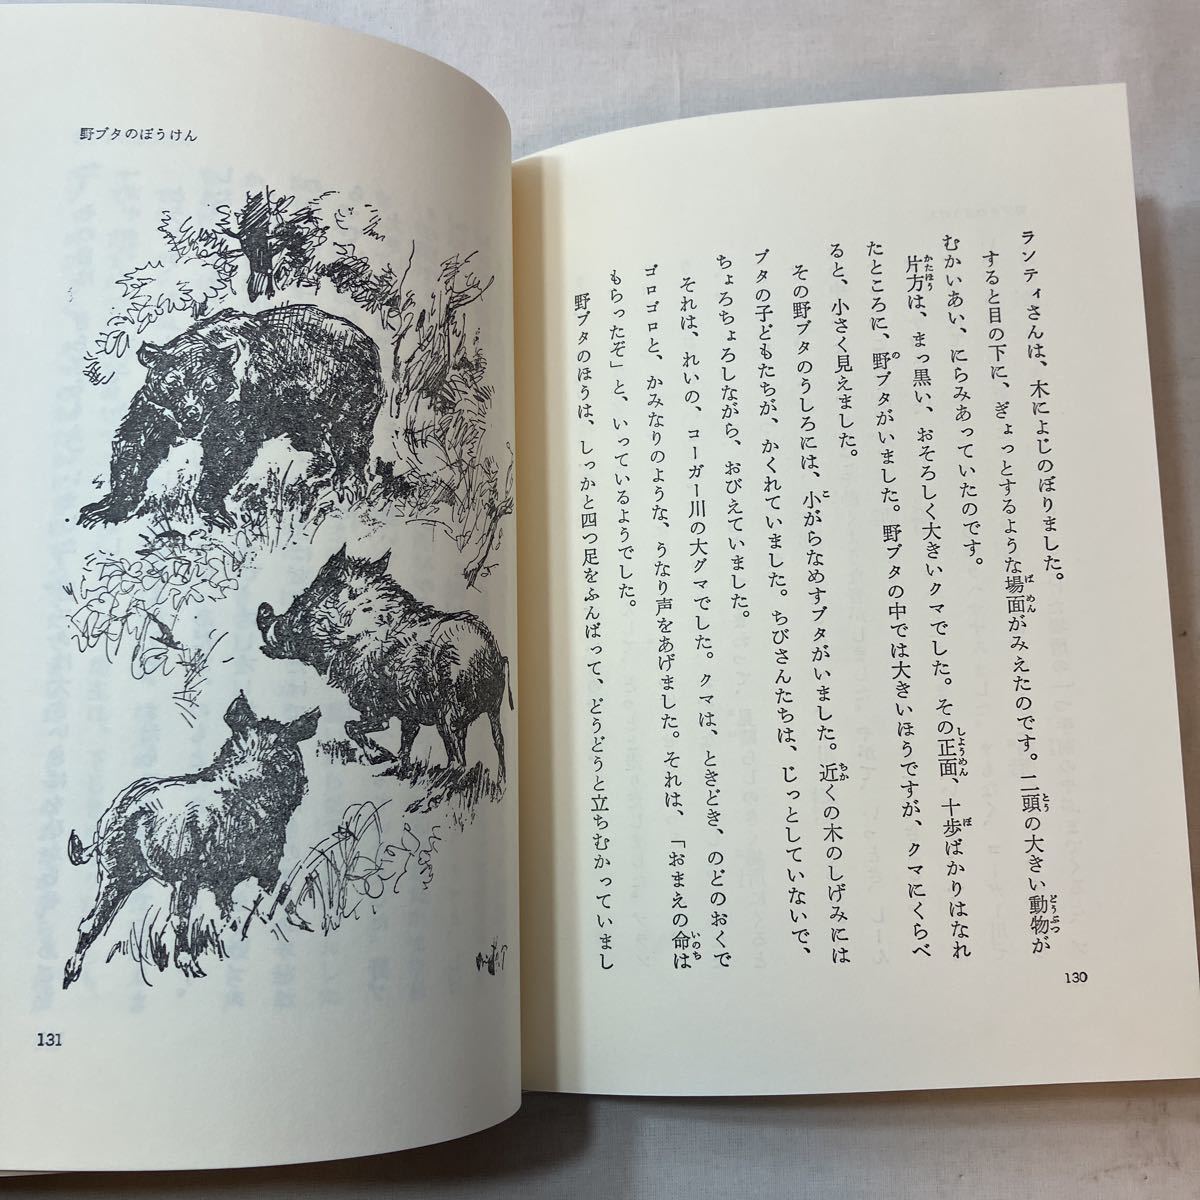 ランティさんは、木によじのぼりました。
すると目の下に、ぎょっとするような場面がみえたのです。二頭の大きい動物が
むかいあい、にらみあっていたのです。
片方は、まっ黒い、おそろしく大きいクマでした。その正面、十歩ばかりはなれ
たところに、野ブタがいました。野ブタの中では大きいほうですが、クマにくらべ
ると、小さく見えました。
その野ブタのうしろには、小がらなめすブタがいました。近くの木のしげみには
ブタの子どもたちが、かくれていました。ちびさんたちは、じっとしていないで、
ちょろちょろしながら、おびえていました。
それは、れいの、コーガー川の大グマでした。クマは、ときどき、のどのおくで
ゴロゴロと、かみなりのような、うなり声をあげました。それは、「おまえの命は
もらったぞ」と、いっているようでした。
野ブタのほうは、しっかと四つ足をふんばって、どうどうと立ちむかっていまし
130
野ブタのぼうけん
131